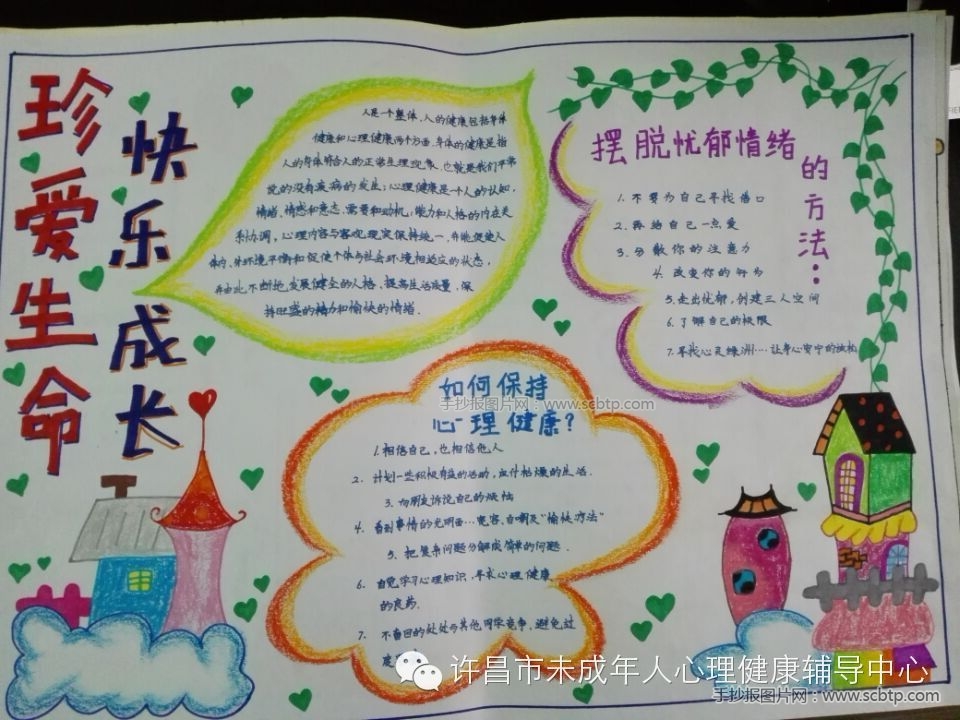 珍爱生命
快乐成长
人是一个整体，人的健康包括身体
健康和心理健康两个方面，身体的健康是指
人的身体符合人的正常生理现象，也就是我们平常
说的没有疾病的发生；心理健康是个人的认知，
情绪，情感和意志，需要和动机，能力和人格的内在关
系协调，心理内容与客观现实保持统一，并能促使人
体内、外环境平衡和促使个体与社会环境相适应的状态，
并由此不断地发展健全的人格，提高生活质量，保
持旺盛的精力和愉快的情绪．
摆脱忧郁情绪
的方法：
1. 不要为自己寻找借口
2. 再给自己一点爱
3. 分散你的注意力
4. 改变你的行为
5. 走出忧郁，创建三人空间
6. 了解自己的极限
7. 寻找心灵绿洲…让身心安宁的
如何保持
手抄报图片网：www.scbtp.com
心理健康？
1. 相信自己，也相信他人
2. 计划一些积极有益的活动，应付枯燥的生活．
3. 向朋友诉说自己的烦恼
4. 看到事情的光明面…宽容、自嘲及“愉快疗法”
5. 把复杂问题分解成简单的问题．
6. 自觉学习心理知识，寻求心理健康
的良药．
7. 不盲目的处处与其他同学竞争，避免过
度
许昌市未成年人心理健康辅导中心
手抄报图片网：www.scbtp.com